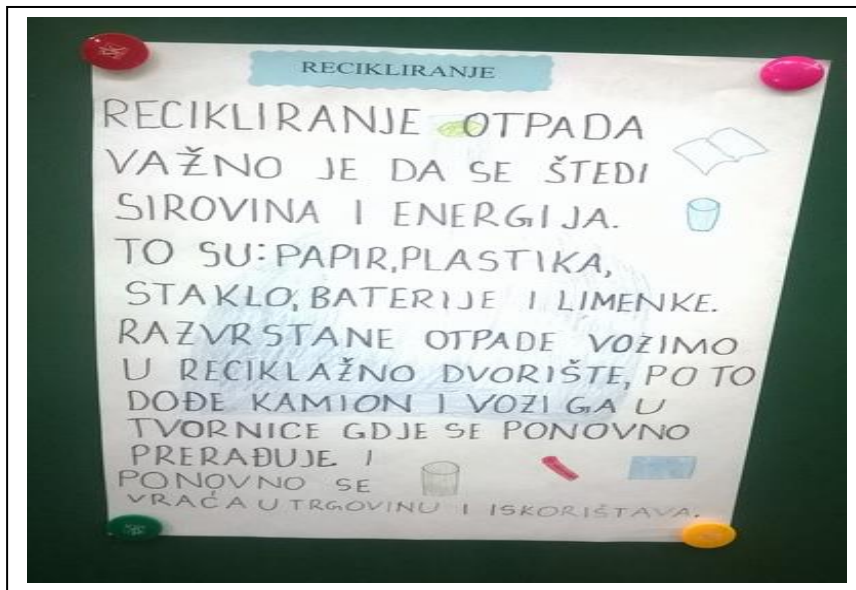 RECIKLIRANJE
RECIKLIRANJE OTPADA
VAŽNO JE DA SE ŠTEDI
SIROVINA I ENERGIJA.
TO SU: PAPIR, PLASTIKA,
STAKLO, BATERIJE I LIMENKE.
RAZVRSTANE OTPADE VOZIMO
U RECIKLAŽNO DVORIŠTE, PO TO
DOĐE KAMION I VOZI GA U
TVORNICE GDJE SE PONOVNO
PRERAĐUJE I
PONOVNO SE
VRAĆA U TRGOVINU I ISKORIŠTAVA.